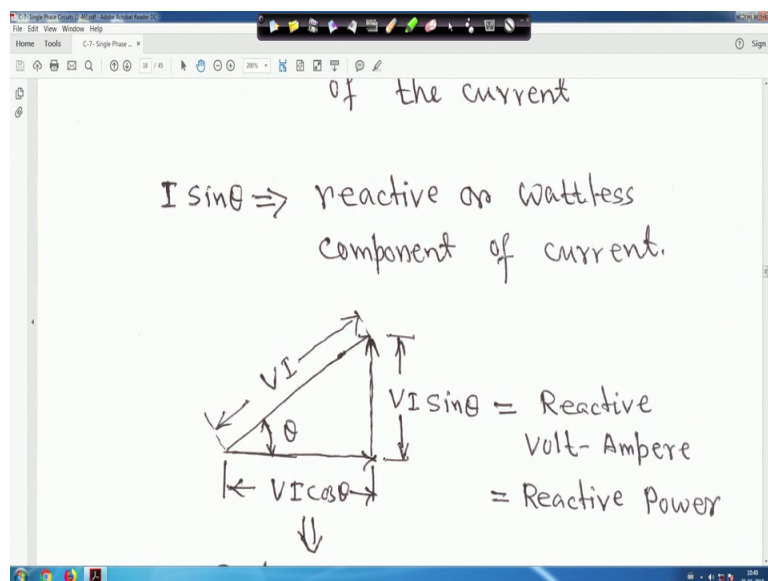 C-7- Single Phase Circuits [2-46].pdf - Adobe Acrobat Reader DC
File Edit View Window Help
Home Tools C-7- Single Phase ... × Sign
38 / 45 200%
of the current
I sinθ ⇒ reactive or wattless
component of current.
VI
θ
VI sinθ = Reactive
Volt-Ampere
= Reactive Power
VI cosθ
⇓